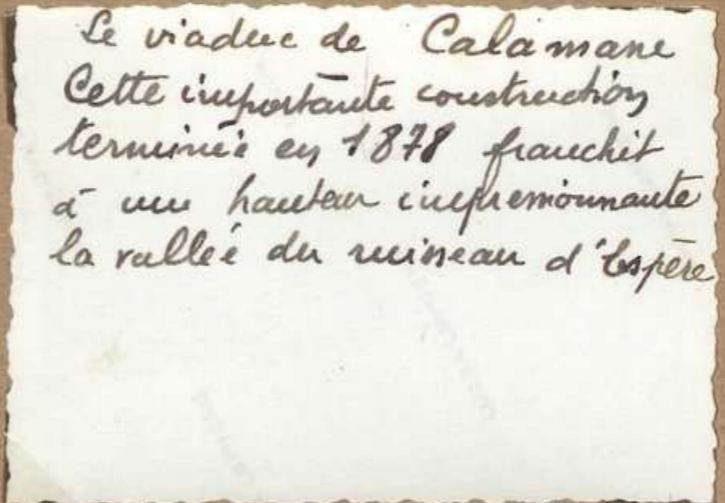 Le viaduc de Calamane
Cette importante construction
terminée en 1878 franchit
à une hauteur impressionnante
la vallée du ruisseau d'Espère